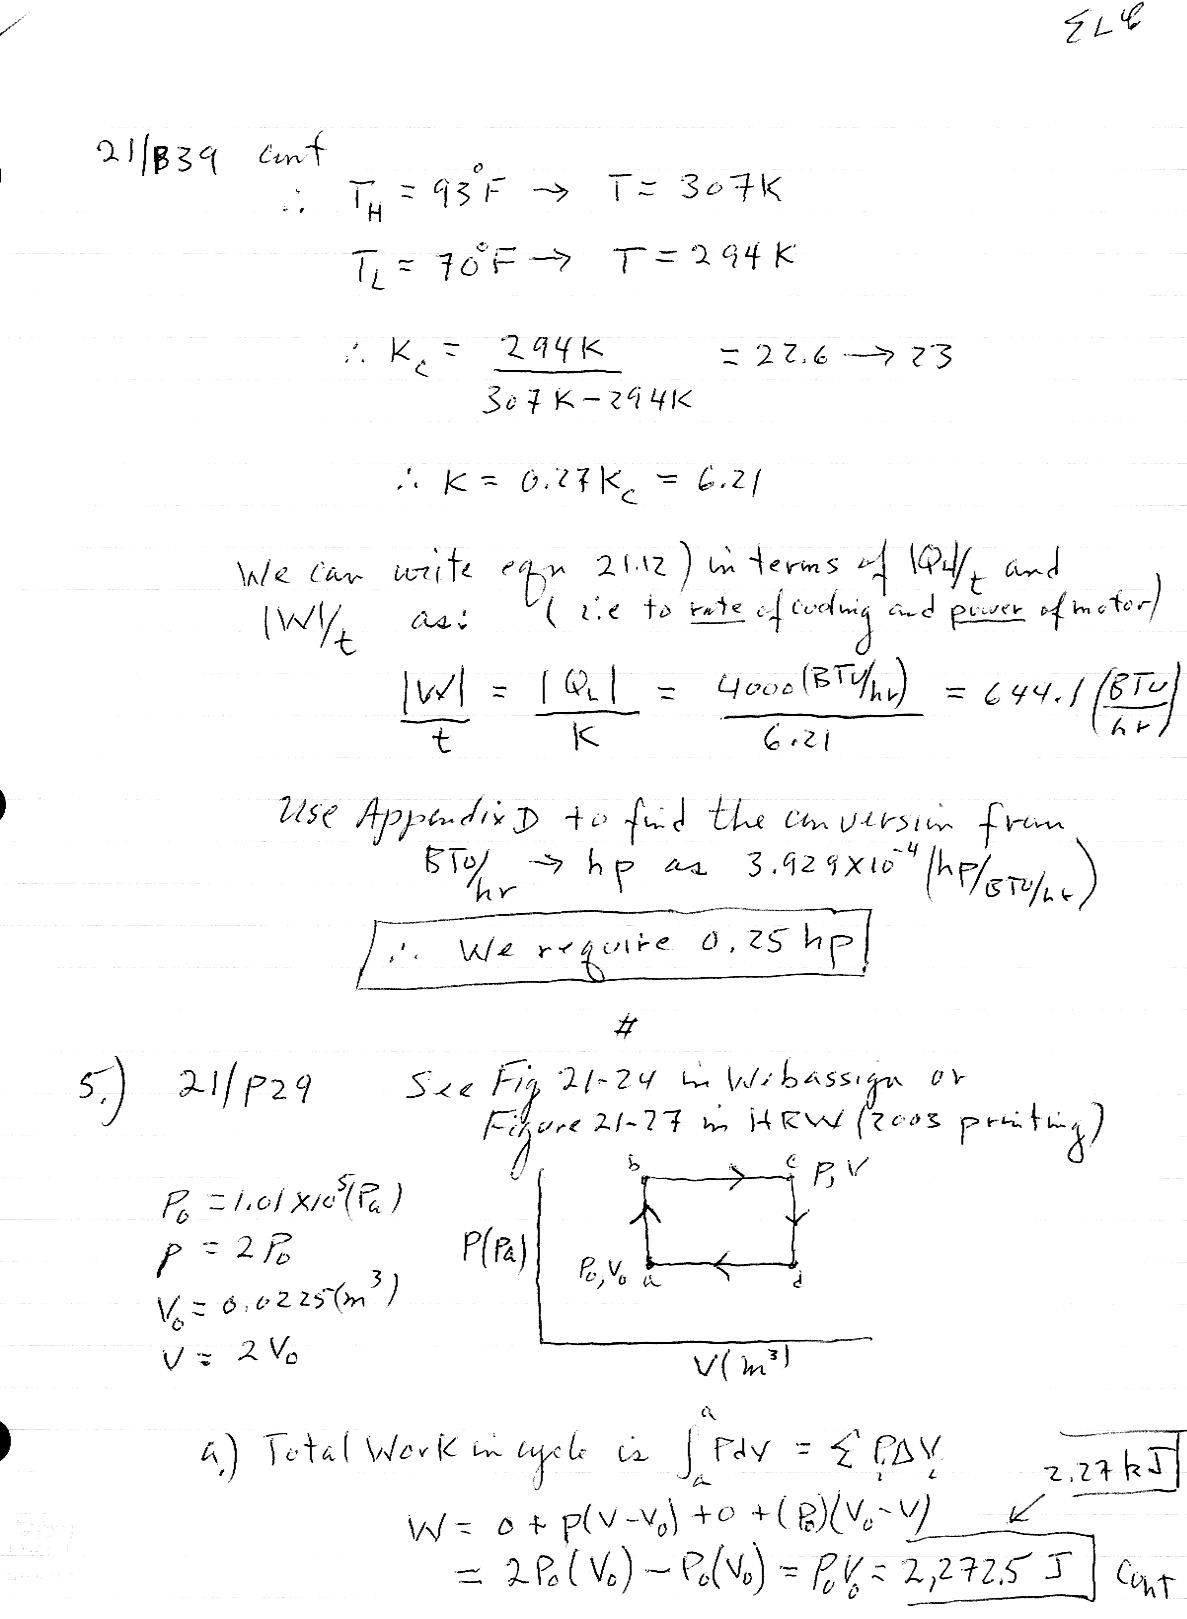 ELC
21/B39 cont
∴ T_H = 93°F → T = 307K
T_L = 70°F → T = 294K
∴ K_c = 294K / (307K - 294K) = 22.6 → 23
∴ K = 0.27K_c = 6.21
We can write eqn 21.12) in terms of |Q_L|/t and
|W|/t as: (i.e to rate of cooling and power of motor)
|W|/t = |Q_L|/K = 4000 (BTU/hr) / 6.21 = 644.1 (BTU/hr)
Use Appendix D to find the conversion from
BTU/hr → hp as 3.929 X 10^-4 (hp/BTU/hr)
∴ We require 0.25 hp
#
5.) 21/P29 See Fig 21-24 in Webassign or
Figure 21-27 in HRW (2003 printing)
b c P, V
P_0 = 1.01 X10^5 (Pa)
p = 2 P_0
P(Pa)
P_0, V_0 a d
V_0 = 0.0225 (m^3)
V = 2 V_0
V (m^3)
a.) Total Work in cycle is ∫_a^a PdV = Σ P_i ΔV_i
2.27 kJ
W = 0 + p(V-V_0) + 0 + (P_0)(V_0-V)
= 2P_0(V_0) - P_0(V_0) = P_0V_0 = 2,272.5 J cont